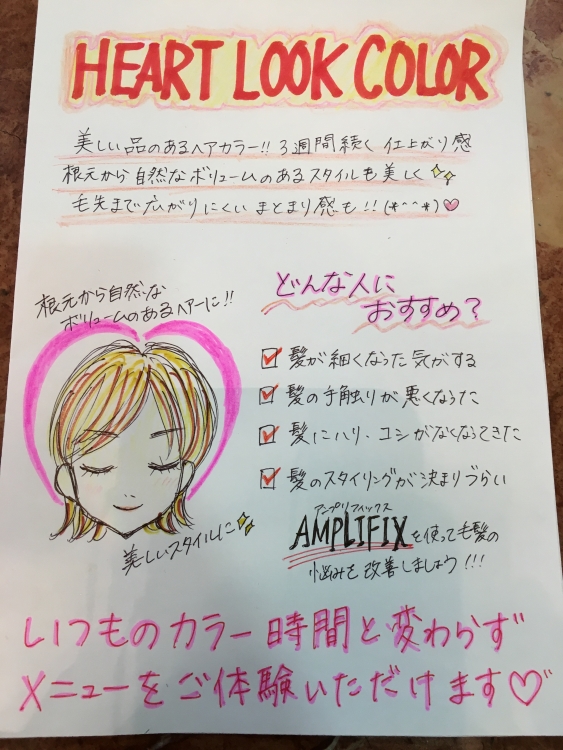 HEART LOOK COLOR
美しい品のあるヘアカラー!! 3週間続く 仕上がり感
根元から自然なボリュームのあるスタイルも美しく✨
毛先まで広がりにくいまとまり感も!!(*^^*)♥
根元から自然な
ボリュームのあるヘアーに!!
どんな人に
おすすめ?
☑ 髪が細くなった気がする
☑ 髪の手触りが悪くなった
☑ 髪にハリ、コシがなくなってきた
☑ 髪のスタイリングが決まりづらい
美しいスタイルに✨
アンプリフィックス
AMPLIFIXを使って毛髪の
悩みを改善しましょう!!!
いつものカラー時間と変わらず
メニューをご体験いただけます♡